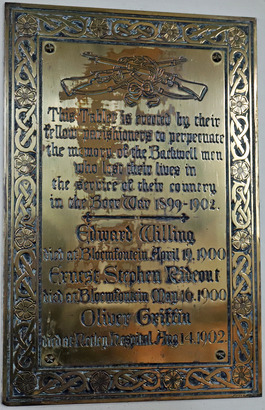 This Tablet is erected by their
fellow parishioners to perpetuate
the memory of the Backwell men
who lost their lives in
the service of their country
in the Boer War 1899-1902.
Edward Willing
died at Bloemfontein April 19, 1900
Ernest Stephen Rideout
died at Bloemfontein May 16, 1900
Oliver Griffin
died at Netley Hospital Aug 14, 1902.